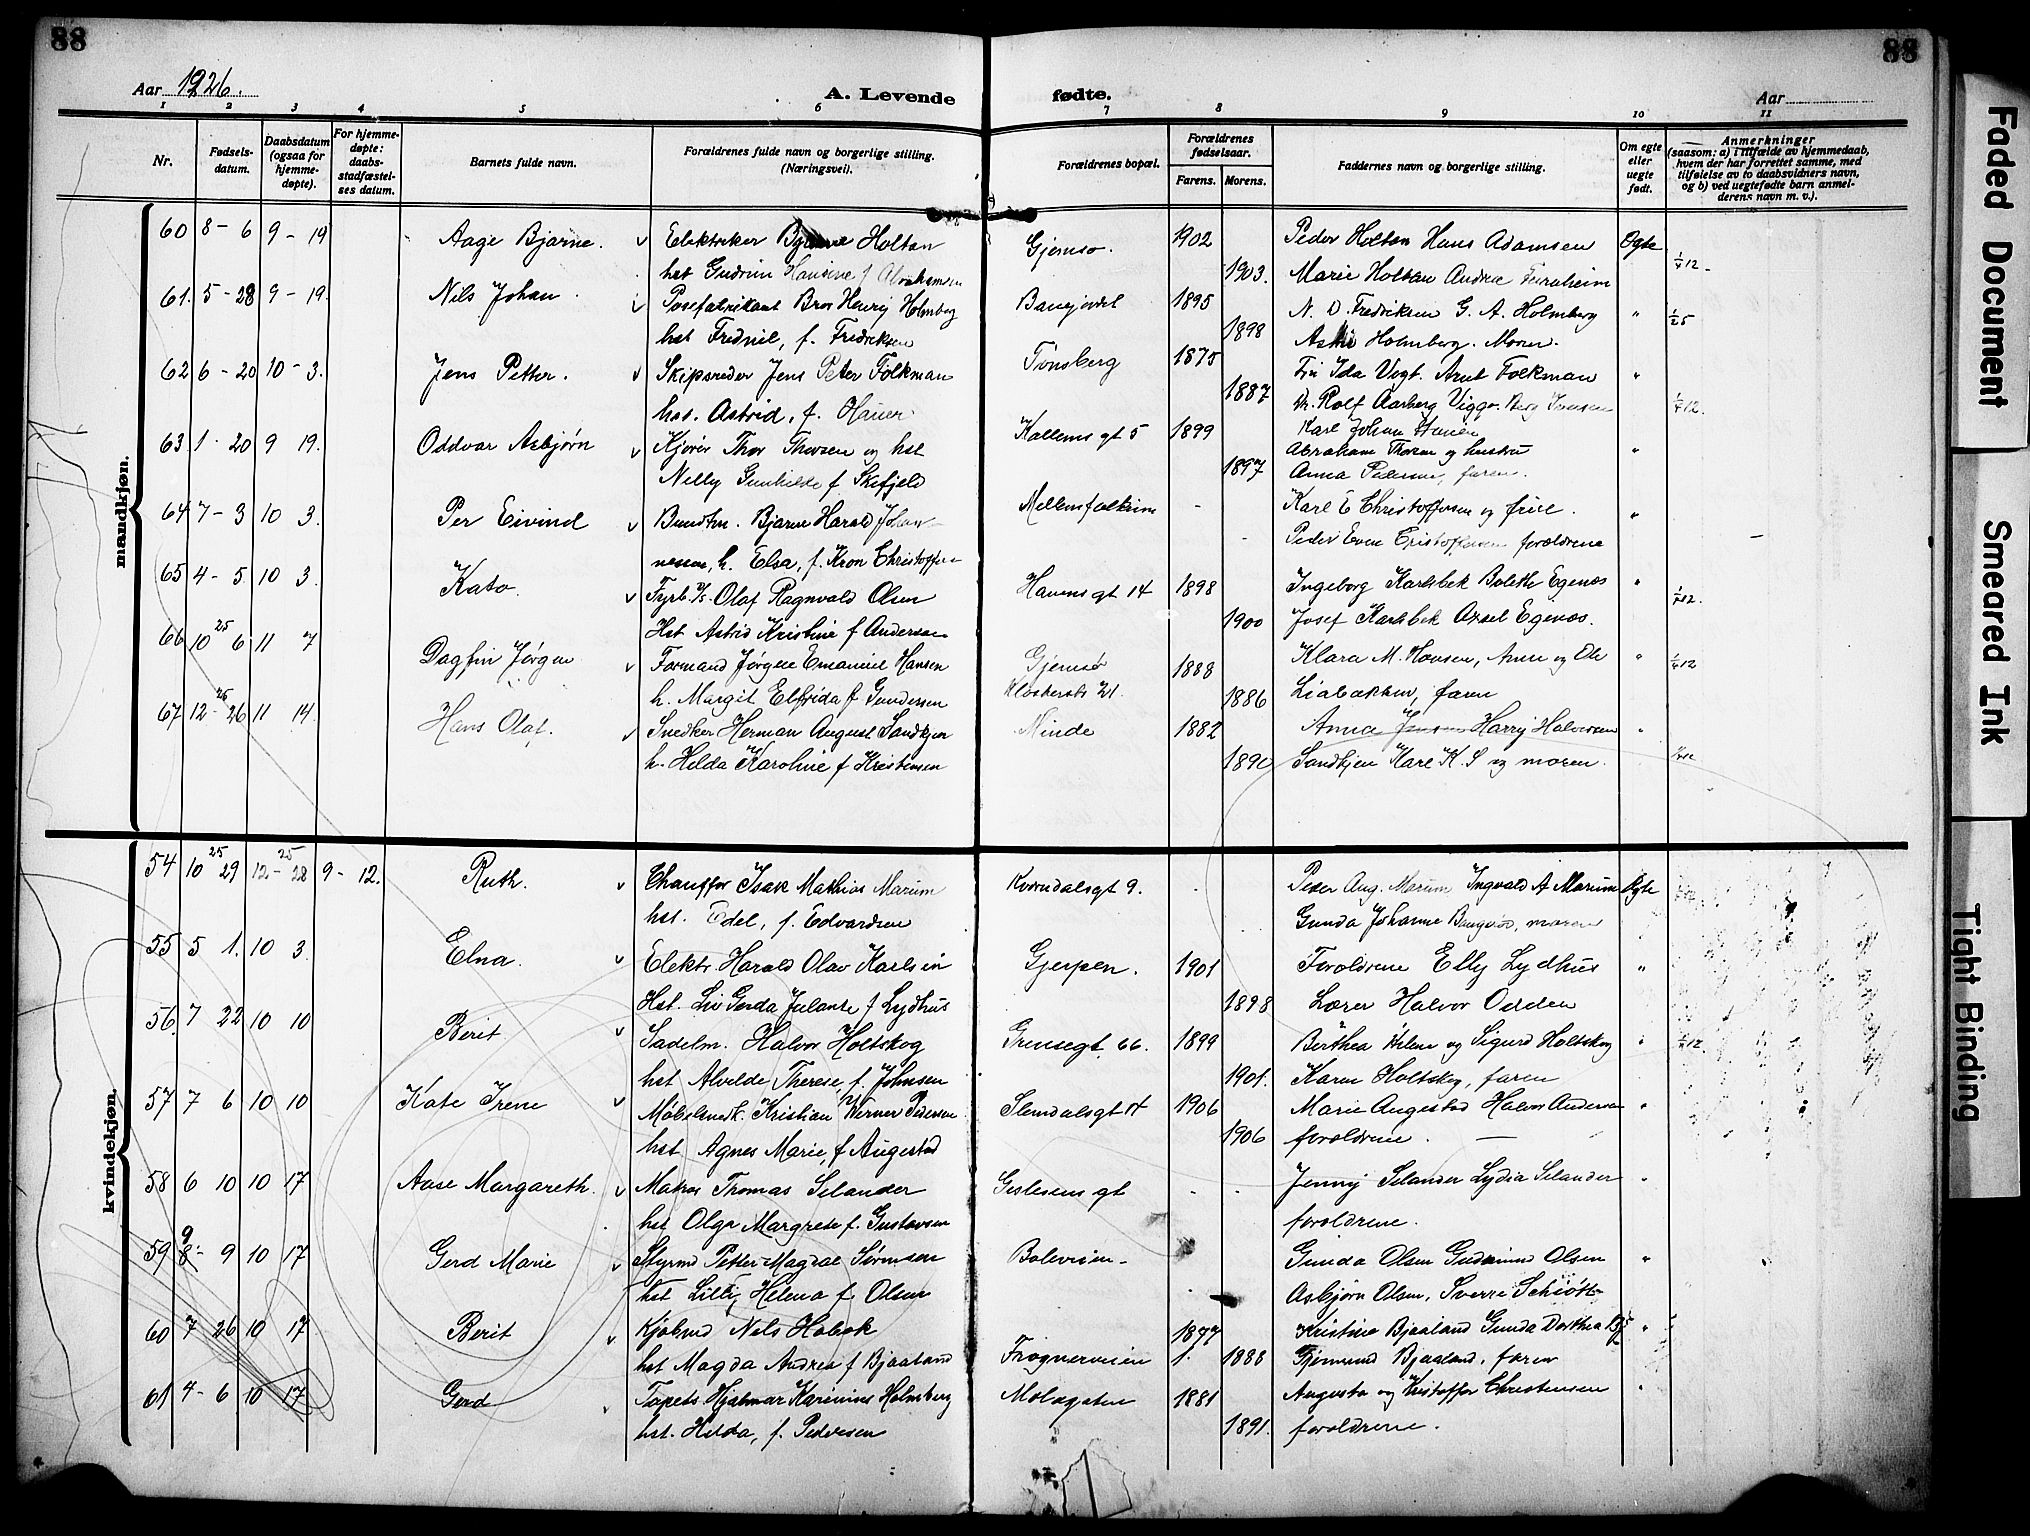 88
88
Aar 1926.
A. Levende fødte.
Aar
1 2 3 4 5 6 7 8 9 10 11
Nr.
Fødsels-
datum.
Daabsdatum
(ogsaa for
hjemme-
døpte).
For hjemme-
døpte:
daabs-
stadfæstel-
ses datum.
Barnets fulde navn.
Forældrenes fulde navn og borgerlige stilling.
(Næringsvei).
Forældrenes bopæl.
Forældrenes
fødselsaar.
Farens. Morens.
Faddernes navn og borgerlige stilling.
Om egte
eller
uegte
født.
Anmerkninger
(saasom: a) i tilfælde av hjemmedaab,
hvem der har forrettet samme, med
tilføielse av to daabsvidners navn,
og b) ved uegtefødte barn anmel-
derens navn m. v.).
mandkjøn.
60 8 - 6 9 - 19 Aage Bjarne. v Elektriker Bjarne Holtan Gjemsø. 1902 Peder Holtan Hans Adamsen Egte
hst Gudrun Hansine f Abrahamsen 1903. Marie Holtan Andrea
61. 5 - 28 9 - 19. Nils Johan v Posefabrikant Bror Henry Holmberg 1895 N. D. Fredriksen G. A. Holmberg "
hst f. Fredriksen 1898 Holmberg. Moren.
62 6 - 20 10 - 3. Jens Petter. v Skipsreder Jens Peter Folkman Tønsberg 1875 Ida Vogt. Arnt Folkman "
hst. Astrid, f. Hauer 1887 Rolf Aarberg Viggo
Karl Johan
63 1 - 20 9 19. Oddvar Asbjørn v Kjører Thor Thorsen og hst gt 5 1899 Abraham Thorsen og hustru "
Nelly Gunhilde f Skifjeld 1897 Anna Pedersen, faren.
64 7 - 3 10 3. Per Eivind v Bjarne Harald Johan- - Karl E Christoffersen og frue. "
nessen, h. Elsa, f. Kron Christoffersen - Peder Even Cristoffersen forældrene
65 4 - 5 10 3. Kato. v Fyrb. Olaf Ragnvald Olsen Havensgt 14 1898 Ingeborg Karlsbek Bolette Egenæs "
Hst Astrid Kristine f Andersen 1900 Josef Karlsbek Axel Egenæs.
66 10 25 6 11 7 Dagfin Jørgen v Formand Jørgen Emanuel Hansen Gjemsø 1888 Klara M. Hansen, Anne og Ole "
h. Margit Elfrida f Gundersen Klosterstr 21. 1886 Liabakken, faren
67 12 - 25 26 11 14. Hans Olaf. v Snedker Herman August Sandkjen Minde 1882 Anna Jensen Harry Halvorsen "
h. Helda Karoline f Kristensen 1890 Sandkjen Karl K. S og moren.
kvindekjøn.
54 10 25 29 12 - 25 28 9 - 12. Ruth. v Chauffør Isak Mathias Marum Kverndalsgt 9. - Peder Aug. Marum Ingvald A Marum Egte
hst. Edel, f. Edvardsen - Gunda Johanne moren
55 5 1. 10 3. Elna. v Elektr. Harald Olav Karlsen Gjerpen. 1901 Forældrene Elly Lydhus "
Hst. Liv Gerda Julante f Lydhus 1898 Lærer Halvor
56. 7 22 10 10 Berit. v Sadelm. Halvor Holtskog Grensegt. 66. 1899 Berthea Helene og Sigurd Holtskog "
hst Alvilde Therese, f. Johnsen 1901. Karen Holtskog, faren
57 7 6 10 10 Kate Irene v Møbelsnedk. Kristian Werner Pedersen Slemdalsgt 14 1906 Marie Augestad Halvor Andersen "
hst Agnes Marie, f Augestad 1906 forældrene.
58 6 10 10 17 Aase Margareth. v Matros Thomas Selander Gislesens gt - - Jenny Selander Lydia Selander "
hst Olga Margrete f. Gustavsen forældrene.
59 9 8 - 9 10 17 Gerd Marie v Styrmd Petter Magdal Sørensen Boleveien - - Gunda Olsen Gudmund Olsen "
hst Lilli, Helena f Olsen Asbjørn Olsen, Sverre Schiøtt
60 7 26 10 17 Berit v Kjøbmd Nils Hobek 1877 Kristine Bjaaland Gunda Dorthea "
hst Magda Andrea f Bjaaland Frognerveien 1888 Gjermund Bjaaland, faren
61 4 - 6 10 17 Gerd v Tapets. Hjalmar Karenius Holmberg Molagaten 1881 Augusta og Kristoffer Christensen "
hst. Hilda, f. Pedersen 1891. forældrene.
Faded Document
Smeared Ink
Tight Binding